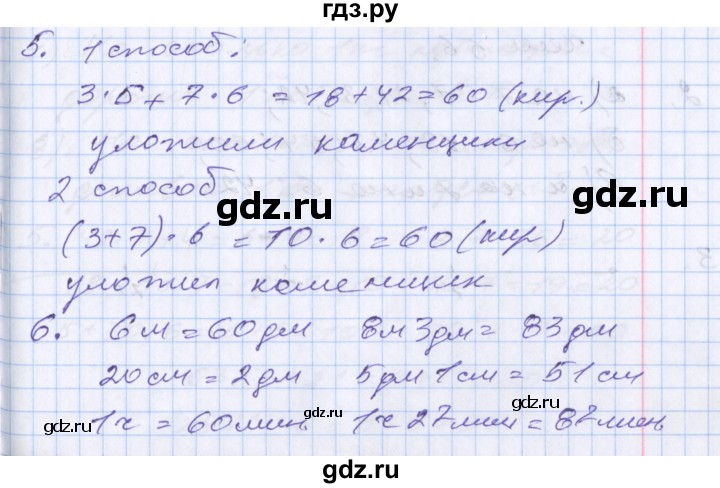 гдз.ру
5. 1 способ:
3·5+7·6 = 18+42=60 (кир.)
уложили каменщики
2 способ
gdz.ru
(3+7)·6=10·6=60 (кир)
gdz.ru gdz.ru
уложил каменщик
6. 6м=60дм 8м 3дм= 83дм
20см=2дм 5дм 1см=51см
gdz.ru gdz.ru gdz.ru
1ч=60мин 1ч 27мин=87мин
gdz.ru